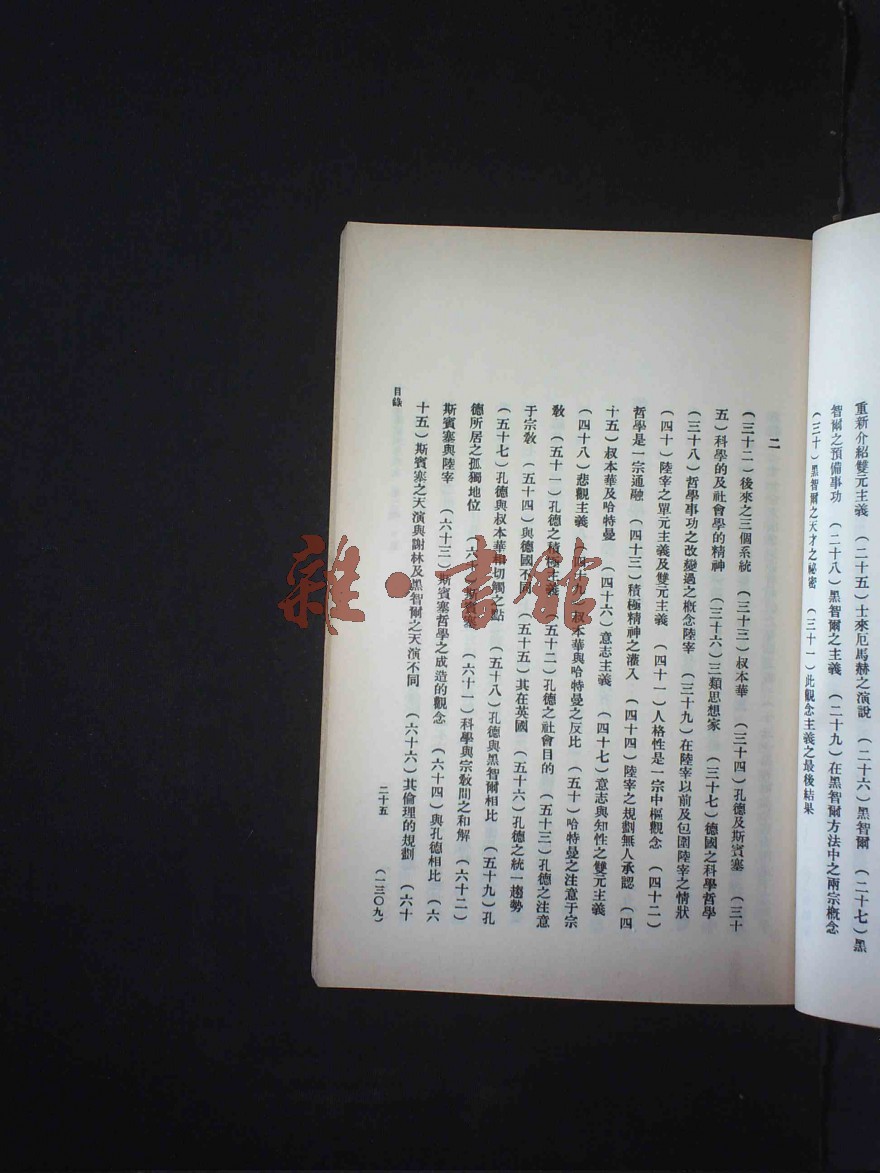 重新介紹雙元主義 （二十五）士來厄馬赫之演說 （二十六）黑智爾 （二十七）黑
智爾之預備事功 （二十八）黑智爾之主義 （二十九）在黑智爾方法中之兩宗概念
（三十）黑智爾之天才之祕密 （三十一）此觀念主義之最後結果
二
（三十二）後來之三個系統 （三十三）叔本華 （三十四）孔德及斯賓塞 （三十
五）科學的及社會學的精神 （三十六）三類思想家 （三十七）德國之科學哲學
（三十八）哲學事功之改變過之概念陸宰 （三十九）在陸宰以前及包圍陸宰之情狀
（四十）陸宰之單元主義及雙元主義 （四十一）人格性是一宗中樞觀念 （四十二）
哲學是一宗通融 （四十三）積極精神之灌入 （四十四）陸宰之規劃無人承認 （四
十五）叔本華及哈特曼 （四十六）意志主義 （四十七）意志與知性之雙元主義
（四十八）悲觀主義 （四十九）叔本華與哈特曼之反比 （五十）哈特曼之注意于宗
教 （五十一）孔德之積極主義 （五十二）孔德之社會目的 （五十三）孔德之注意
于宗教 （五十四）與德國不同 （五十五）其在英國 （五十六）孔德之統一趨勢
（五十七）孔德與叔本華相切觸之點 （五十八）孔德與黑智爾相比 （五十九）孔
德所居之孤獨地位 （六十）斯賓塞 （六十一）科學與宗教間之和解 （六十二）
斯賓塞與陸宰 （六十三）斯賓塞哲學之成造的觀念 （六十四）與孔德相比 （六
十五）斯賓塞之天演與謝林及黑智爾之天演不同 （六十六）其倫理的規劃 （六十
目錄
二十五
（一三〇九）
雜·書館